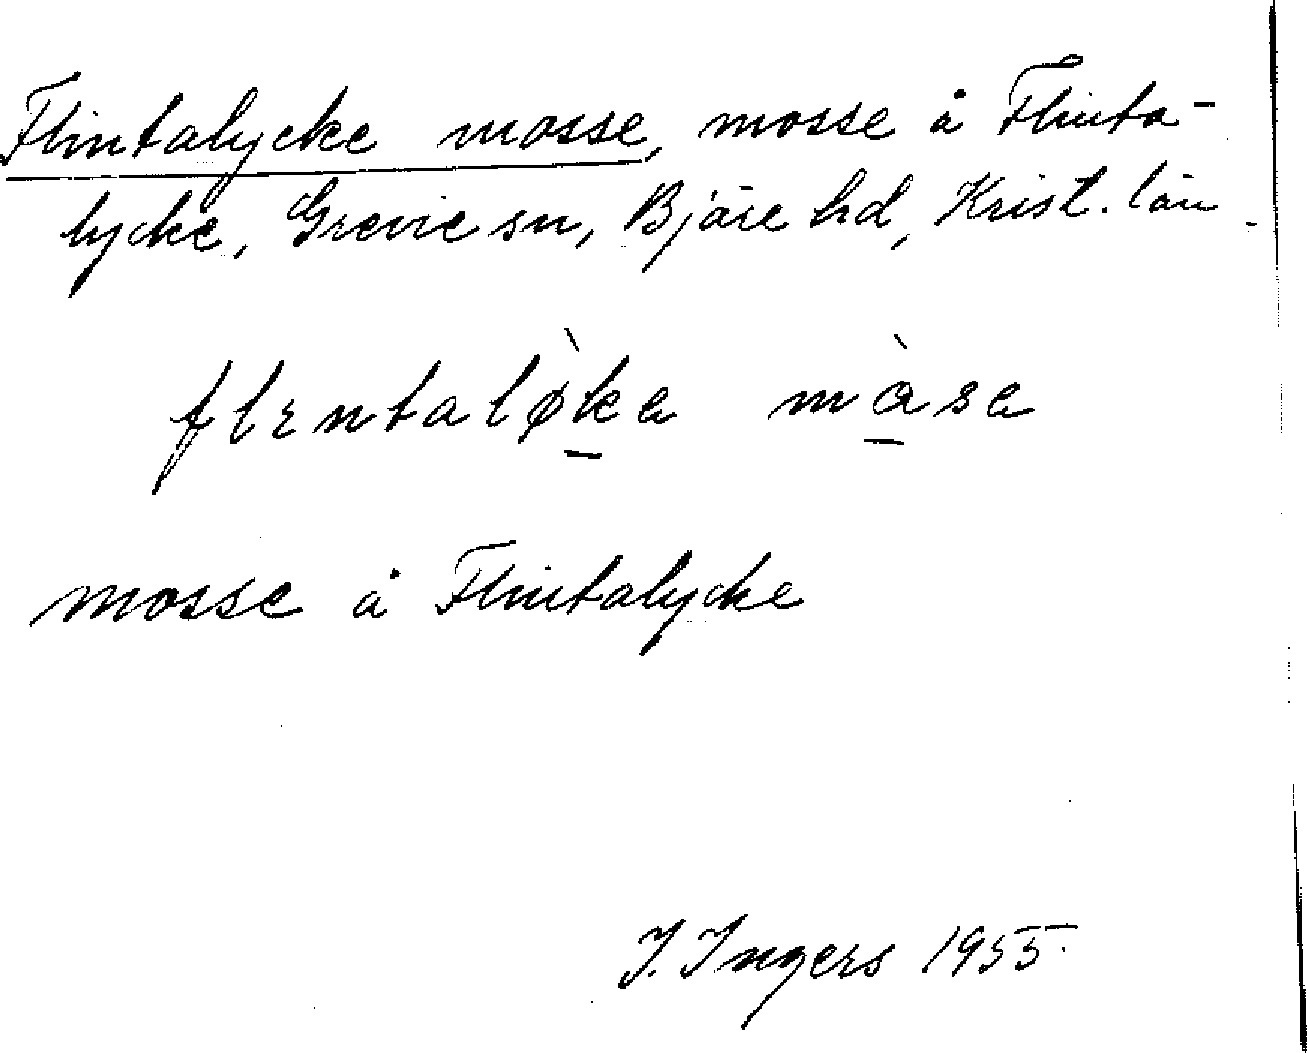 Flintalycke mosse, mosse å Flinta-
lycke, Grevie sn, Bjäre hd, Krist. län.
flɪntalø̀ka mɑ̀sa
mosse å Flintalycke
I. Ingers 1955.